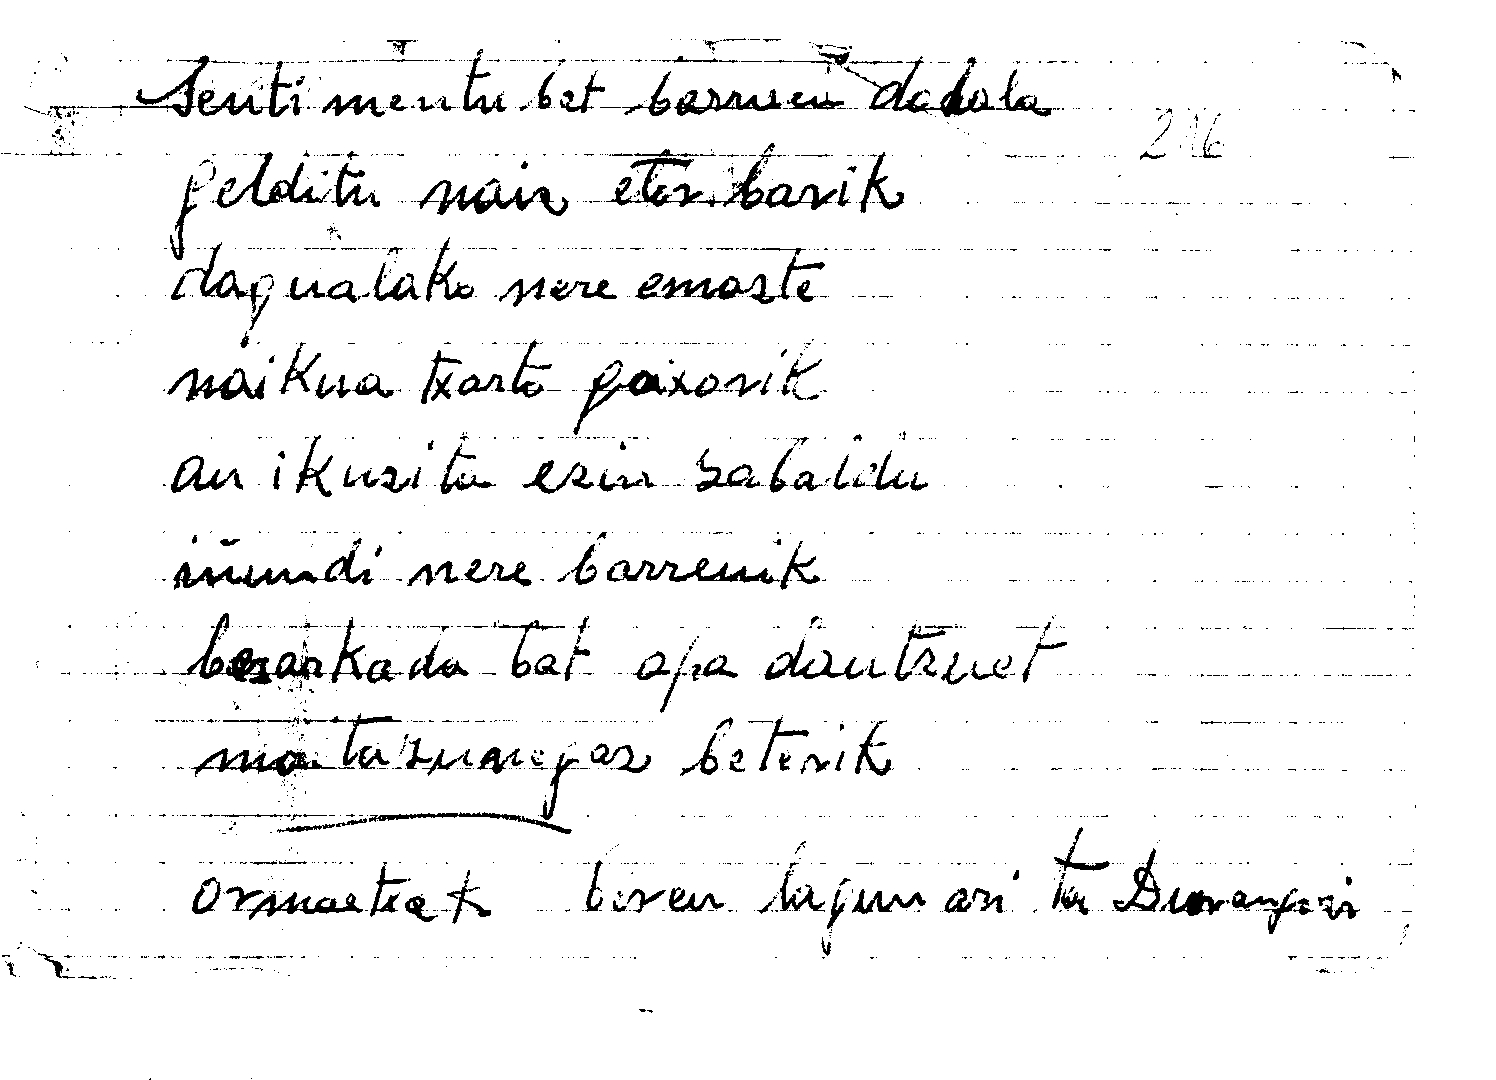 Sentimentu bat barruen dadola
216
gelditu naiz etor barik
dagualako nere emazte
naikua txarto gaixorik
au ikuzita ezin zabaldu
iñundi nere barrenik
bezarkada bat apa dautzuet
maitazunegaz beterik
ormaetxeak beren lagun ari ta Durangori